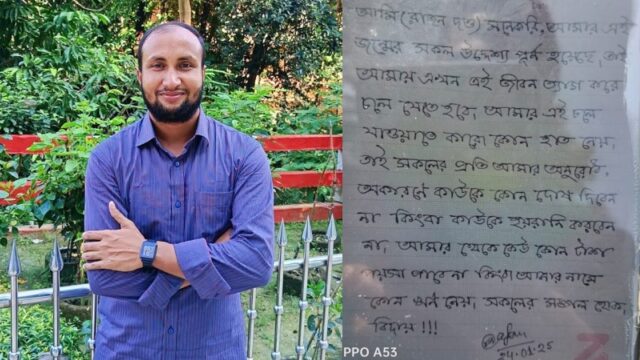 আমি (মোহন দত্ত) মনেকরি, আমার এই
জন্মের সকল উদ্দেশ্য পূর্ন হয়েছে তাই
আমায় এখন এই জীবন ত্যাগ করে
চলে যেতে হবে, আমার এই চলে
যাওয়াতে কারো কোন হাত নেয়,
তাই সকলের প্রতি আমার অনুরোধ,
অকারণে কাউকে কোন দোষ দিবেন
না কিংবা কাউকে হয়রানি করবেন
না, আমার থেকে কেউ কোন টাকা
পয়সা পাবেনা কিংবা আমার নামে
কোন ঋণ নেয়, সকলের মঙ্গল হোক,
বিদায় !!!
24.01.25
PPO A53